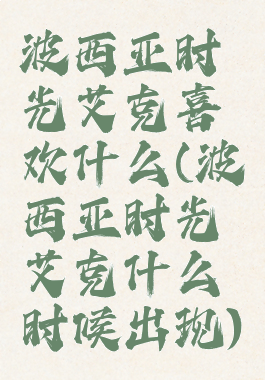 波西亚时
光艾克喜
欢什么(波
西亚时光
艾克什么
时候出现)